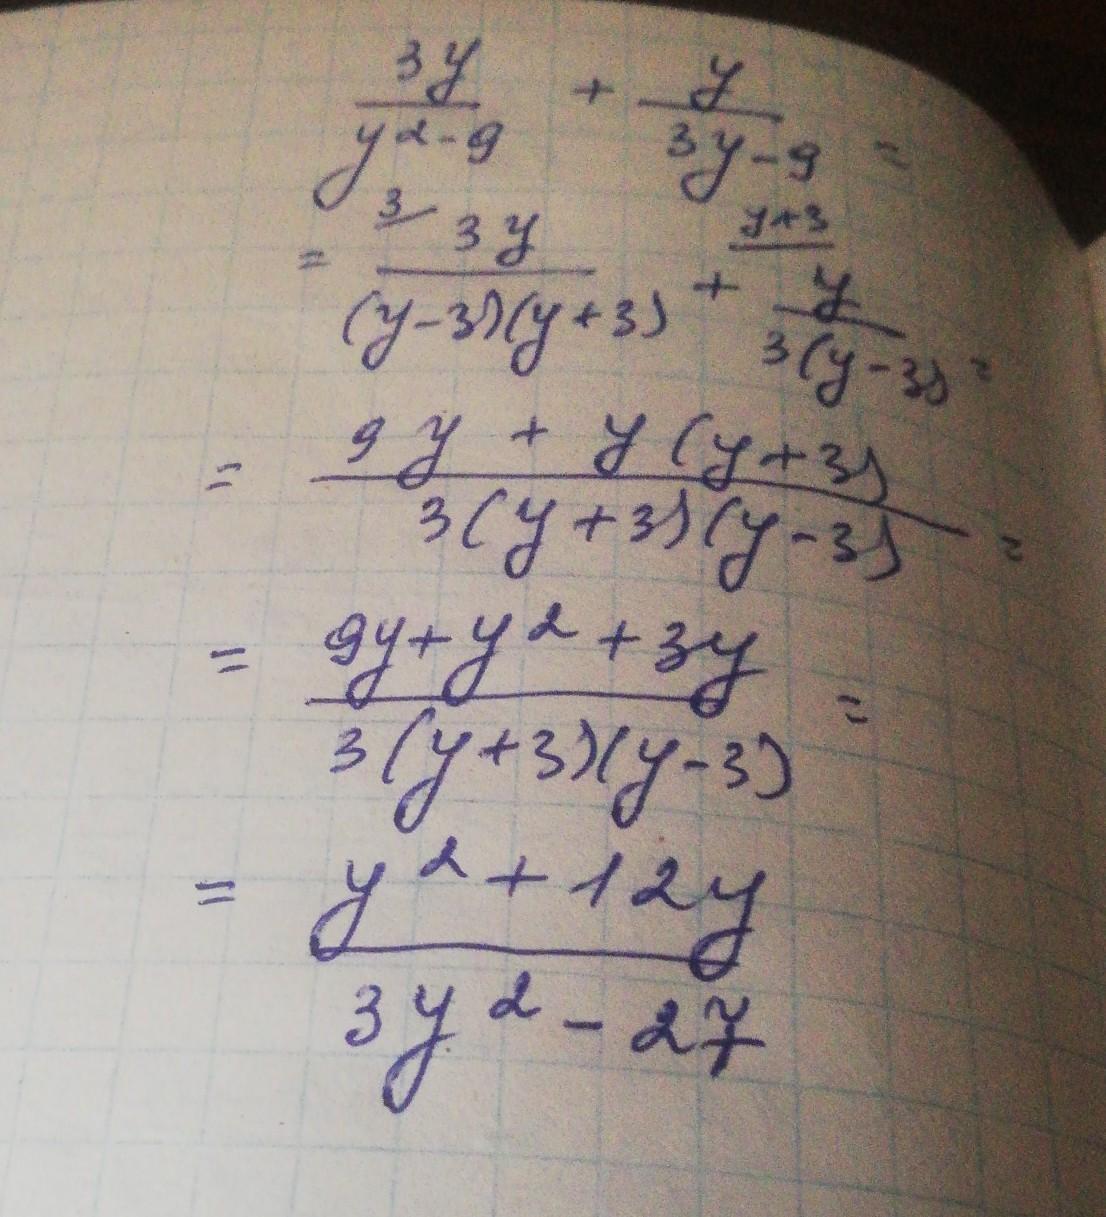 3y/(y²-9) + y/(3y-9) =
= 3/ 3y/((y-3)(y+3)) + y+3/ y/(3(y-3)) =
= (9y + y(y+3))/(3(y+3)(y-3)) =
= (9y+y²+3y)/(3(y+3)(y-3)) =
= (y²+12y)/(3y²-27)